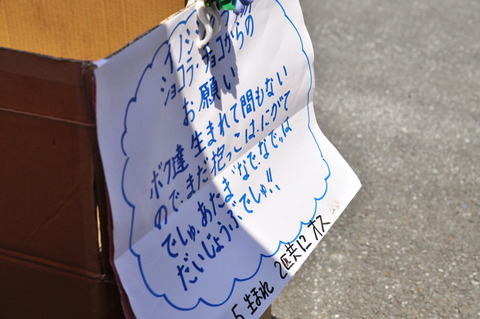 ショコラ・チョコからの
お願い
ボク達 生まれて間もない
ので、まだ抱っこは、にがて
でしゅ。あたまなでなでは
だいじょうぶでしゅ!!
生まれ 2匹共にオス